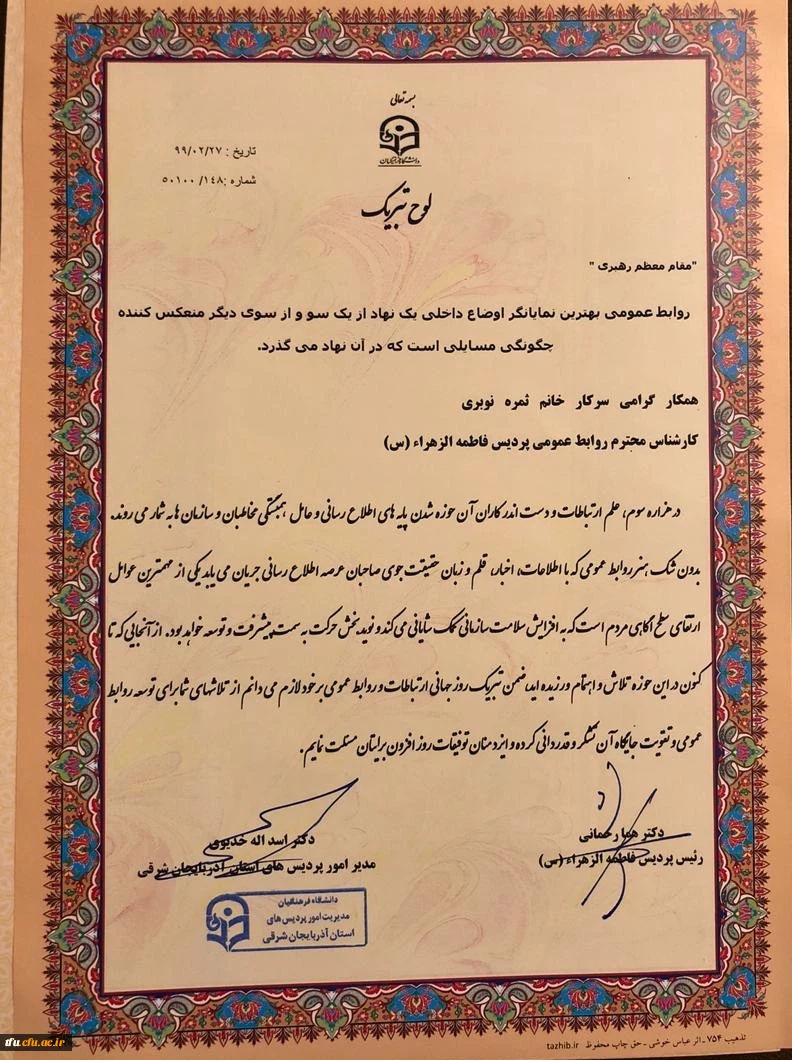 بسمه تعالی
دانشگاه فرهنگیان
تاریخ : ۹۹/۰۲/۲۷
شماره :۱۴۸/ ۵۰۱۰۰
لوح تبریک
"مقام معظم رهبری "
روابط عمومی بهترین نمایانگر اوضاع داخلی یک نهاد از یک سو و از سوی دیگر منعکس کننده
چگونگی مسایلی است که در آن نهاد می گذرد.
همکار گرامی سرکار خانم ثمره نوبری
کارشناس محترم روابط عمومی پردیس فاطمه الزهراء (س)
در هزاره سوم، علم ارتباطات و دست اندرکاران آن حوزه شدن پایه های اطلاع رسانی و عامل همبستگی مخاطبان و سازمان ها به شمار می روند.
بدون شک هنر روابط عمومی که با اطلاعات، اخبار، قلم و زبان حقیقت جوی صاحبان عرصه اطلاع رسانی جریان می یابد یکی از مهمترین عوامل
ارتقای سطح آگاهی مردم است که به افزایش سلامت سازمانی کمک شایانی می کند و نوید بخش حرکت به سمت پیشرفت و توسعه خواهد بود. از آنجایی که تا
کنون در این حوزه تلاش و اهتمام ورزیده اید، ضمن تبریک روز جهانی ارتباطات و روابط عمومی بر خود لازم می دانم از تلاشهای شما برای توسعه روابط
عمومی و تقویت جایگاه آن تشکر و قدردانی کرده و ایزد منان توفیقات روز افزون برایتان مسئلت نمایم.
دکتر هما رحمانی
رئیس پردیس فاطمه الزهراء (س)
دکتر اسد اله خدیوی
مدیر امور پردیس های استان آذربایجان شرقی
دانشگاه فرهنگیان
مدیریت امور پردیس های
استان آذربایجان شرقی
تذهیب ۷۵۴ ـ اثر عباس خوشی ـ حق چاپ محفوظ tazhib.ir
tfu.cfu.ac.ir